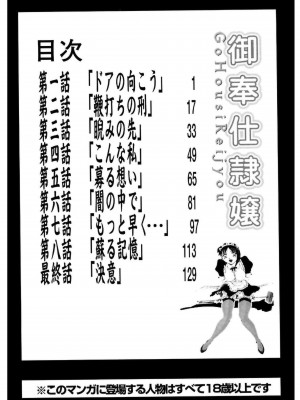 御奉仕隷嬢
GoHousiReijyou
目次
第一話 「ドアの向こう」 1
第二話 「鞭打ちの刑」 17
第三話 「睨みの先」 33
第四話 「こんな私」 49
第五話 「募る想い」 65
第六話 「闇の中で」 81
第七話 「もっと早く…」 97
第八話 「蘇る記憶」 113
最終話 「決意」 129
※このマンガに登場する人物はすべて18歳以上です